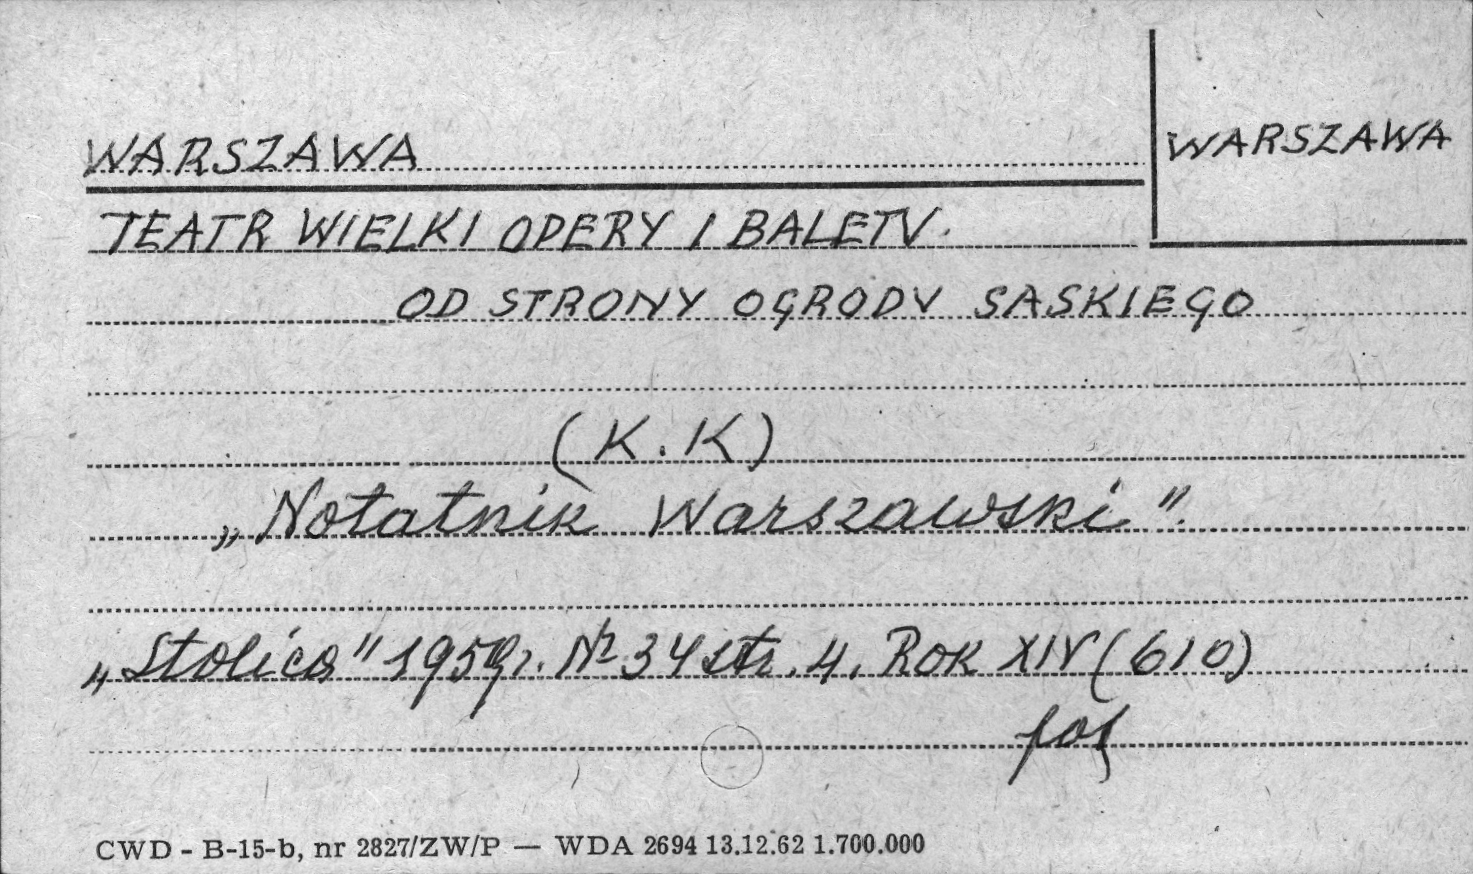 WARSZAWA
WARSZAWA
TEATR WIELKI OPERY I BALETU.
OD STRONY OGRODU SASKIEGO
(K.K)
„Notatnik Warszawski".
„Stolica" 1959r. Nr 34 str. 4. Rok XIV (610)
CWD - B-15-b, nr 2827/ZW/P — WDA 2694 13.12.62 1.700.000